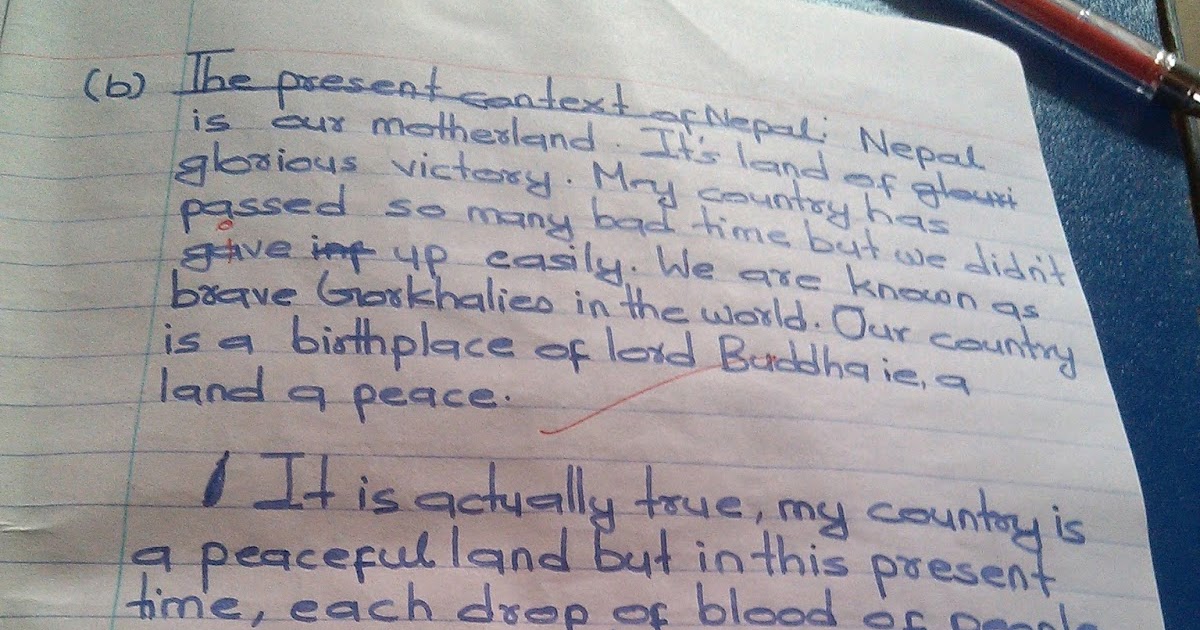 (b) The present context of Nepal: Nepal
is our motherland. It's land of glouri
glorious victory. My country has
passed so many bad time but we didn't
gave inf up easily. We are known as
brave Gorkhalies in the world. Our country
is a birthplace of lord Buddha ie, a
land a peace.
It is actually true, my country is
a peaceful land but in this present
time, each drop of blood of people